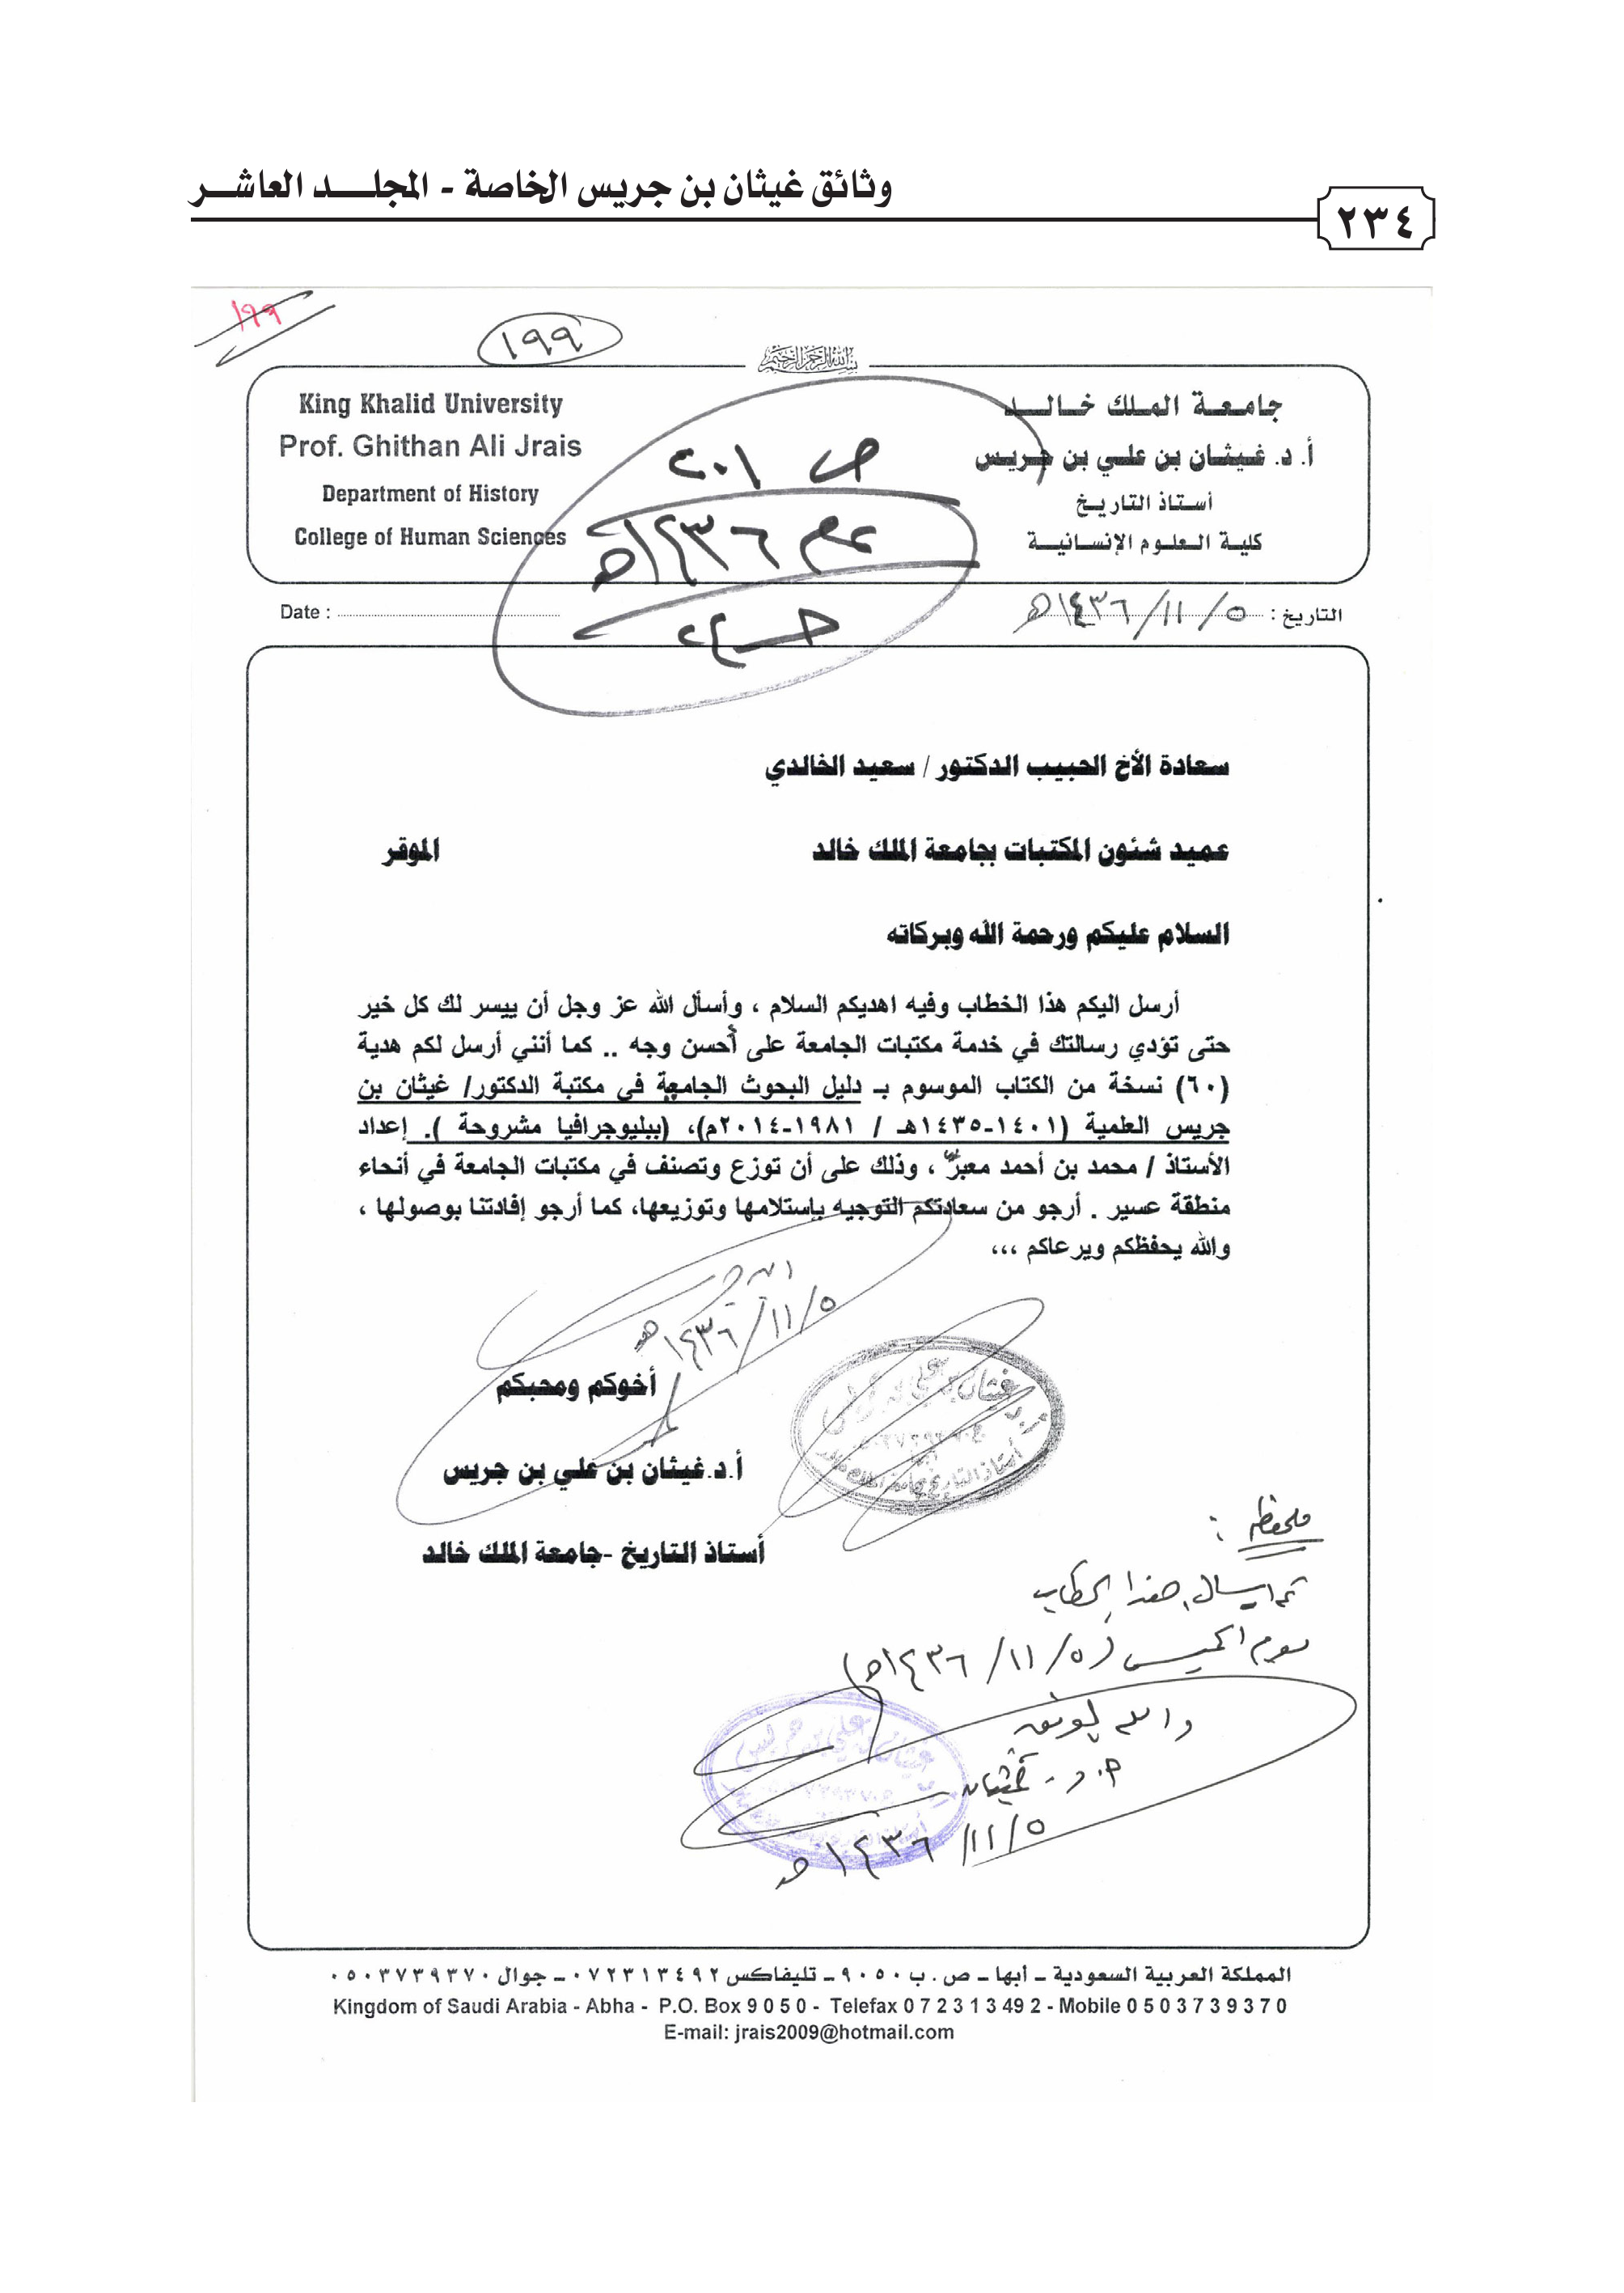 وثائق غيثان بن جريس الخاصة - المجلـــد العاشـــر
٢٣٤
١٩٩
١٩٩
بسم الله الرحمن الرحيم
جامعة الملك خالد
أ. د. غيثان بن علي بن جريس
أستاذ التاريخ
كلية العلوم الإنسانية
King Khalid University
Prof. Ghithan Ali Jrais
Department of History
College of Human Sciences
ص ٢٠١
عام ١٤٣٦هـ
التاريخ : ٥ / ١١ / ١٤٣٦هـ
Date :
سعادة الأخ الحبيب الدكتور / سعيد الخالدي
عميد شئون المكتبات بجامعة الملك خالد الموقر
السلام عليكم ورحمة الله وبركاته
أرسل اليكم هذا الخطاب وفيه اهديكم السلام ، وأسأل الله عز وجل أن ييسر لك كل خير
حتى تؤدي رسالتك في خدمة مكتبات الجامعة على أحسن وجه .. كما أنني أرسل لكم هدية
(٦٠) نسخة من الكتاب الموسوم بـ دليل البحوث الجامعية في مكتبة الدكتور/ غيثان بن
جريس العلمية (١٤٠١-١٤٣٥هـ / ١٩٨١-٢٠١٤م)، (ببليوجرافيا مشروحة ). إعداد
الأستاذ / محمد بن أحمد معبر ، وذلك على أن توزع وتصنف في مكتبات الجامعة في أنحاء
منطقة عسير . أرجو من سعادتكم التوجيه بإستلامها وتوزيعها، كما أرجو إفادتنا بوصولها ،
والله يحفظكم ويرعاكم ،،،
٥ / ١١ / ١٤٣٦هـ
أخوكم ومحبكم
أ.د.غيثان بن علي بن جريس
أستاذ التاريخ -جامعة الملك خالد
ملحوظة :
تم ارسال هذا الخطاب
يوم الخميس (٥ / ١١ / ١٤٣٦هـ)
والله يوفقه
أ.د. غيثان
٥ / ١١ / ١٤٣٦هـ
المملكة العربية السعودية – أبها – ص . ب ٩٠٥٠ – تليفاكس ٠٧٢٣١٣٤٩٢ – جوال ٠٥٠٣٧٣٩٣٧٠
Kingdom of Saudi Arabia - Abha - P.O. Box 9 0 5 0 - Telefax 0 7 2 3 1 3 49 2 - Mobile 0 5 0 3 7 3 9 3 7 0
E-mail: jrais2009@hotmail.com